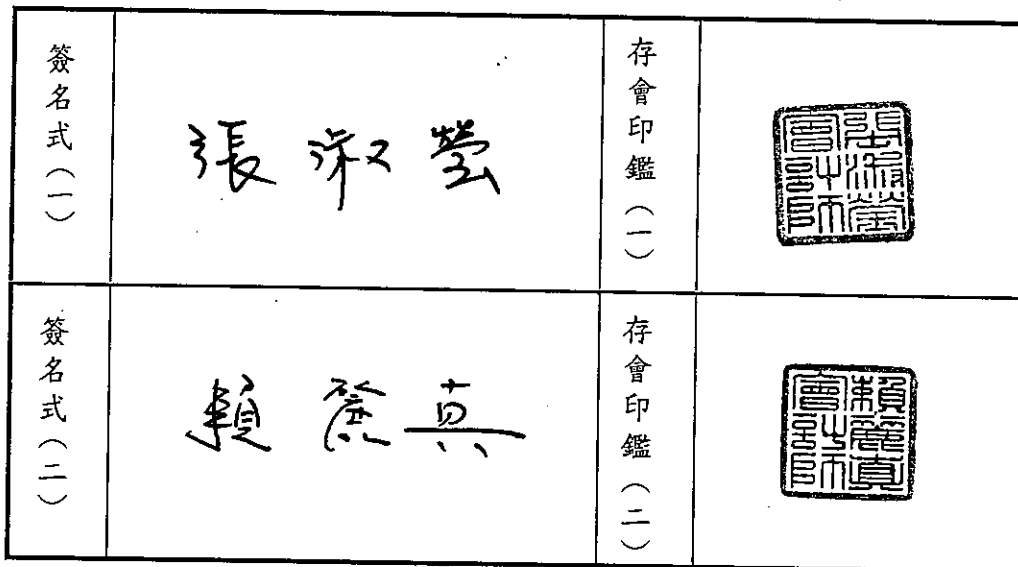 簽名式（一）
張淑瑩
存會印鑑（一）
張淑瑩會計師
簽名式（二）
賴麗真
存會印鑑（二）
會計師